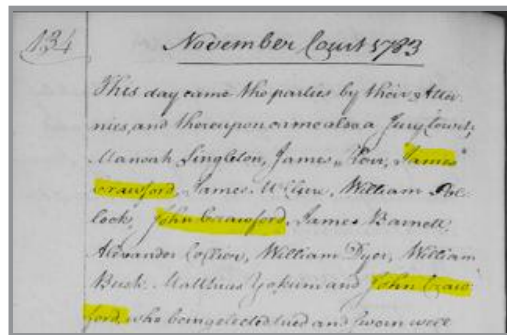 134
November Court 1783
This day came the parties by their Attor
nies, and thereupon came also a Jury towit,
Manoah Singleton, James James
Crawford, James McClure, William Pol
lock, John Crawford, James Barnett,
Alexander Collier, William Dyer, William
Bush, Matthias Yokum and John Craw
ford, who being elected tried and sworn were